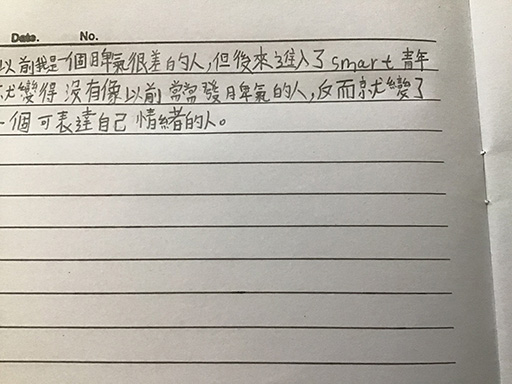 Date. No.
以前我是一個脾氣很差的人,但後來進入了smart青年
就變得沒有像以前常常發脾氣的人,反而就變了
一個可表達自己情緒的人。